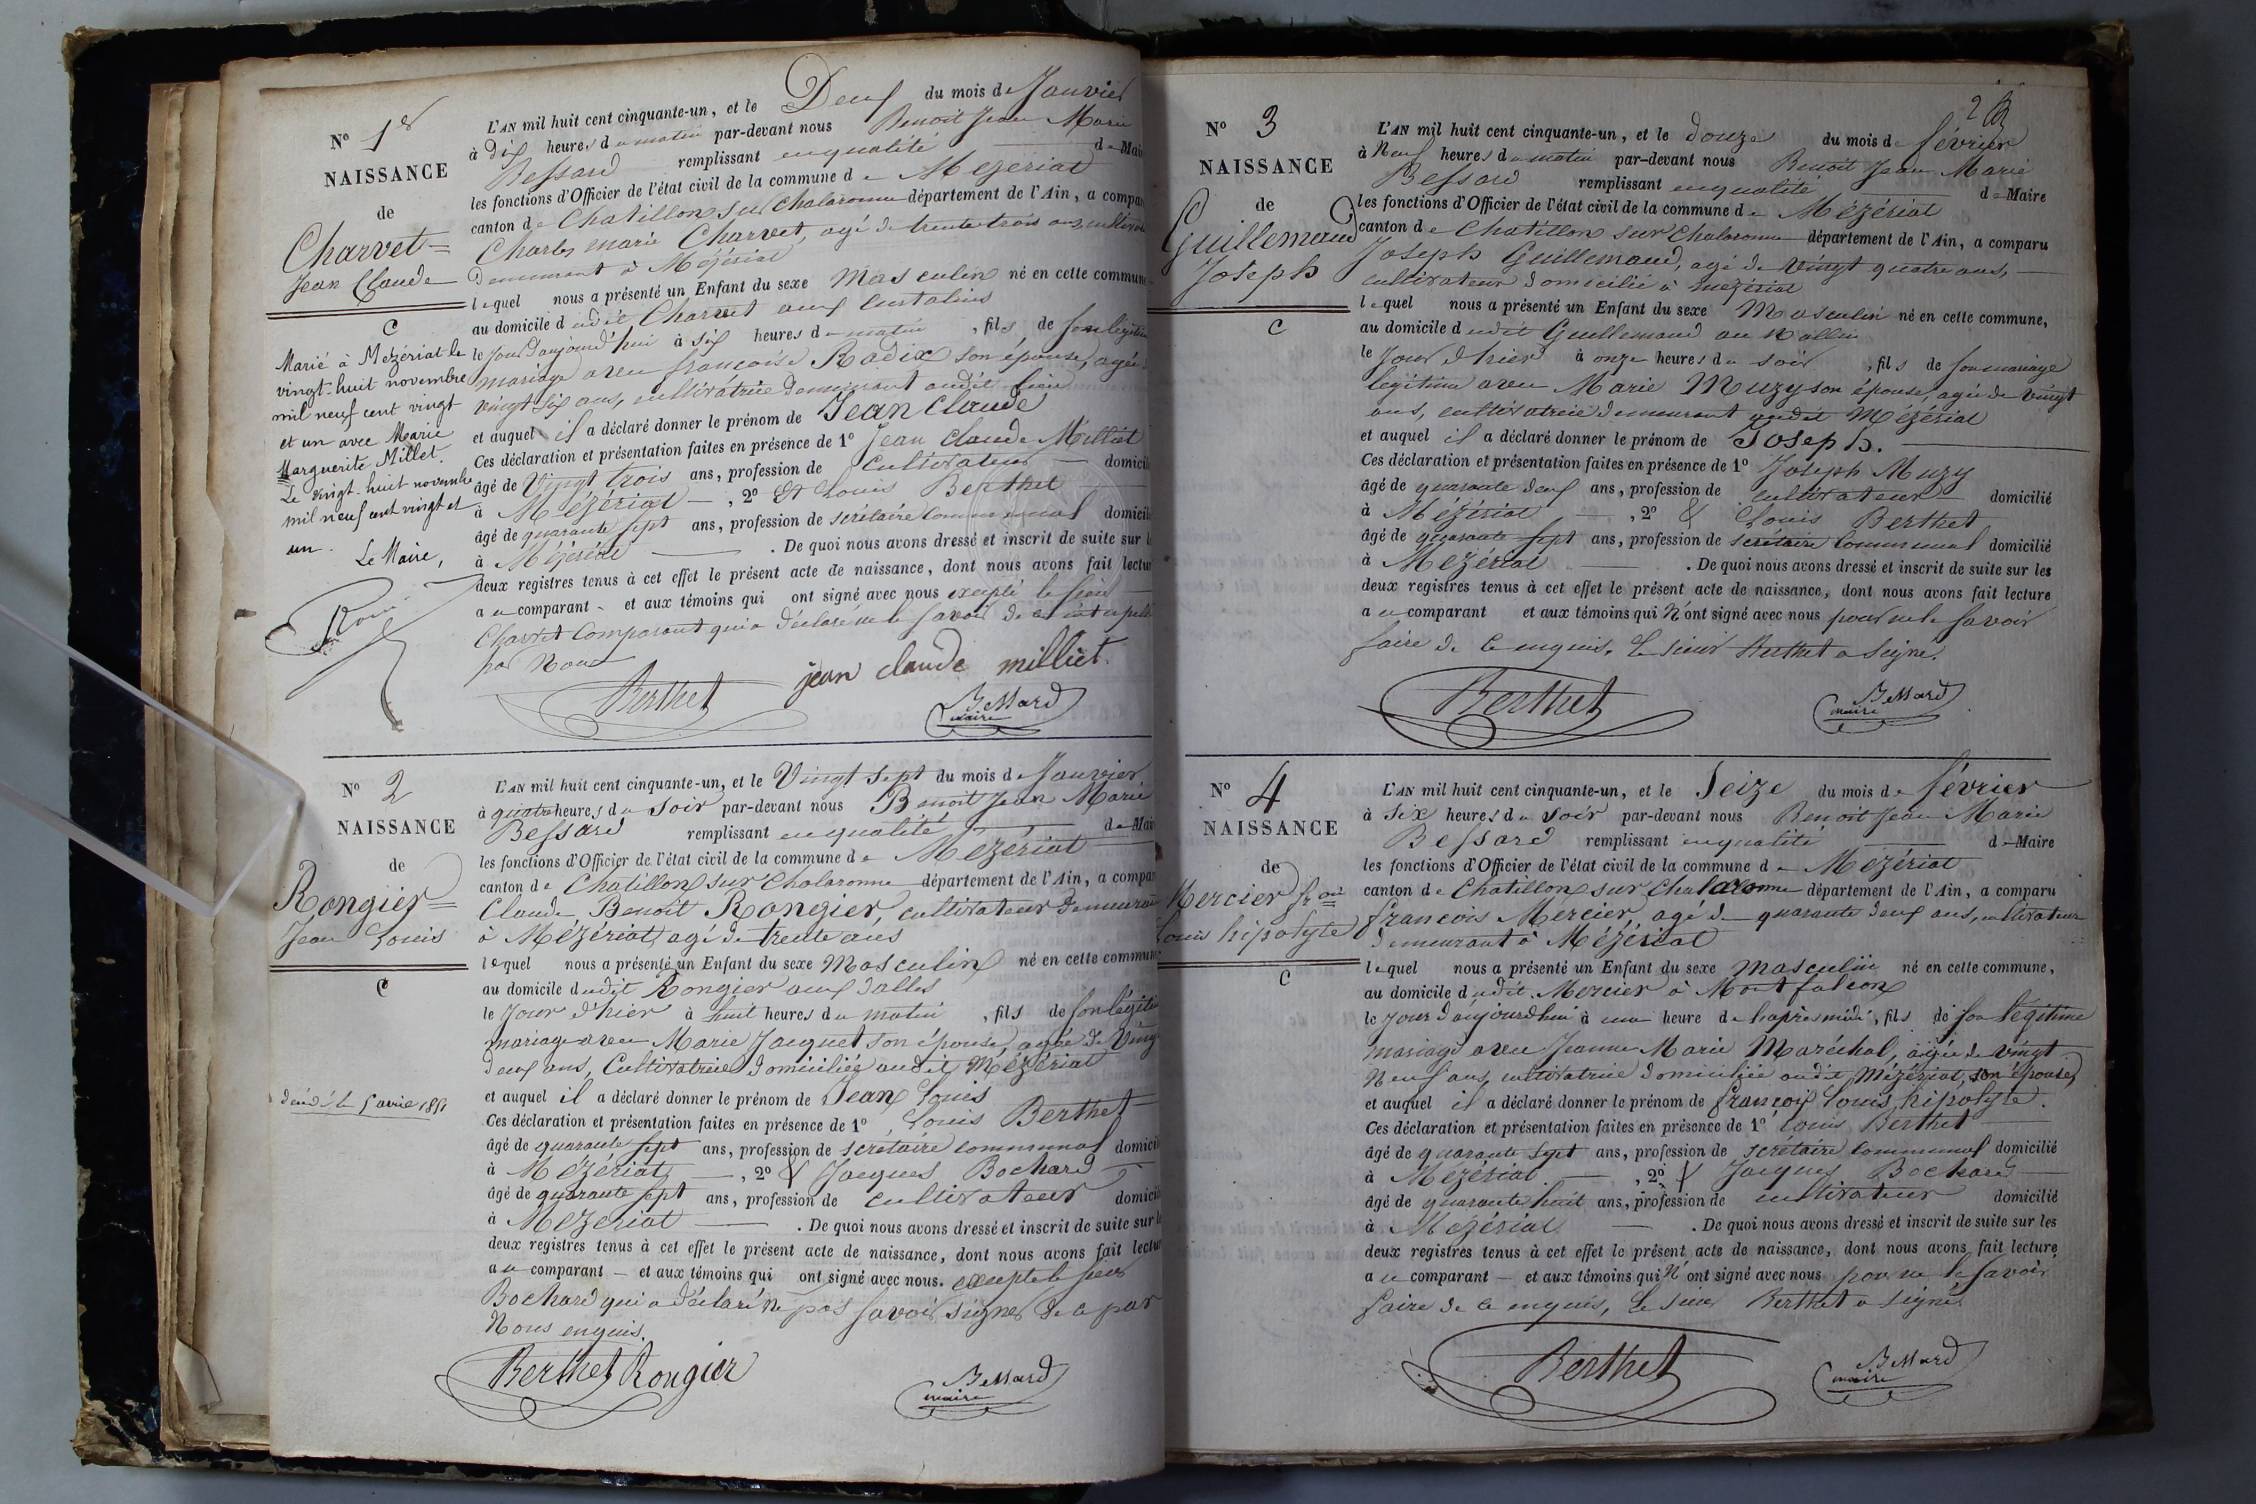 N° 1er
NAISSANCE
de
Charvet
Jean Claude
C
Marié à Mézériat le
vingt-huit novembre
mil neuf cent vingt
et un avec Marie
Marguerite Millet.
Le vingt-huit novembre
mil neuf cent vingt et
un.
Le Maire,
L'AN mil huit cent cinquante-un, et le Deux du mois de Janvier
à dix heures du matin par-devant nous Benoit Jean Marie
Bessard remplissant en qualité de Mai
les fonctions d'Officier de l'état civil de la commune de Mézériat
canton de Chatillon sur Chalaronne département de l'Ain, a compa
Charles marie Charvet, agé de trente trois ans, cultivat
Demeurant à Mézériat
lequel nous a présenté un Enfant du sexe Masculin né en cette commun
au domicile dudit Charvet aux
le Jour d'aujourd'hui à six heures du matin, fils de son légitime
mariage avec françoise Radix son épouse, agée
vingt six ans, cultivatrice demeurant audit lieu
et auquel il a déclaré donner le prénom de Jean Claude
Ces déclaration et présentation faites en présence de 1° Jean Claude Milliet
âgé de Vingt trois ans, profession de Cultivateur domicil
à Mézériat, 2° Et Louis Berthet
âgé de quarante sept ans, profession de secrétaire communal domicil
à Mézériat. De quoi nous avons dressé et inscrit de suite sur l
deux registres tenus à cet effet le présent acte de naissance, dont nous avons fait lectur
au comparant et aux témoins qui ont signé avec nous excepté le sieur
Charvet Comparant qui a déclaré ne le savoir de ce interpellé
par Nous
Berthet jean claude milliet
Bessard
maire
N° 2
NAISSANCE
de
Rongier
Jean Louis
C
décédé le 5 avril 1851
L'AN mil huit cent cinquante-un, et le Vingt sept du mois de Janvier
à quatre heures du soir par-devant nous Benoit Jean Marie
Bessard remplissant en qualité de Mai
les fonctions d'Officier de l'état civil de la commune de Mézériat
canton de Chatillon sur Chalaronne département de l'Ain, a compar
Claude, Benoit Rongier, cultivateur demeurant
à Mézériat, agé de trente ans
lequel nous a présenté un Enfant du sexe Masculin né en cette commun
au domicile dudit Rongier aux dalles
le Jour d'hier à huit heures du matin, fils de son légitime
mariage avec Marie Jacquet son épouse, agée de Vingt
deux ans, Cultivatrice domiciliée audit Mézériat
et auquel il a déclaré donner le prénom de Jean Louis
Ces déclaration et présentation faites en présence de 1° Louis Berthet
âgé de quarante sept ans, profession de secrétaire communal domicil
à Mézériat, 2° & Jacques Bochard
âgé de quarante sept ans, profession de cultivateur domicil
à Mézériat. De quoi nous avons dressé et inscrit de suite sur l
deux registres tenus à cet effet le présent acte de naissance, dont nous avons fait lectur
au comparant — et aux témoins qui ont signé avec nous. excepté le sieur
Bochard qui a déclaré ne pas savoir signer de ce par
Nous enquis.
Berthet Rongier
Bessard
maire
2
N° 3
NAISSANCE
de
Guillemaud
Joseph
C
L'AN mil huit cent cinquante-un, et le douze du mois de février
à Neuf heures du matin par-devant nous Benoit Jean Marie
Bessard remplissant en qualité de Maire
les fonctions d'Officier de l'état civil de la commune de Mézériat
canton de Chatillon sur Chalaronne département de l'Ain, a comparu
Joseph Guillemaud, agé de Vingt quatre ans,
cultivateur domicilié à Mézériat
lequel nous a présenté un Enfant du sexe Masculin né en cette commune,
au domicile dudit Guillemaud au
le Jour d'hier à onze heures du soir, fils de son mariage
légitime avec Marie Muzy son épouse, agée de Vingt
ans, cultivatrice demeurant audit Mézériat
et auquel il a déclaré donner le prénom de Joseph.
Ces déclaration et présentation faites en présence de 1° Joseph Muzy
âgé de quarante deux ans, profession de cultivateur domicilié
à Mézériat, 2° & Louis Berthet
âgé de quarante sept ans, profession de secrétaire communal domicilié
à Mézériat. De quoi nous avons dressé et inscrit de suite sur les
deux registres tenus à cet effet le présent acte de naissance, dont nous avons fait lecture
au comparant et aux témoins qui N'ont signé avec nous pour ne le savoir
faire de ce enquis. Le sieur Berthet a signé.
Berthet
Bessard
maire
N° 4
NAISSANCE
de
Mercier fcois
Louis hipolyte
C
L'AN mil huit cent cinquante-un, et le Seize du mois de février
à six heures du soir par-devant nous Benoit Jean Marie
Bessard remplissant en qualité de Maire
les fonctions d'Officier de l'état civil de la commune de Mézériat
canton de Chatillon sur Chalaronne département de l'Ain, a comparu
françois Mercier, agé de quarante deux ans, cultivateur
demeurant à Mézériat
lequel nous a présenté un Enfant du sexe masculin né en cette commune,
au domicile dudit Mercier à Montfalcon
le Jour d'aujourd'hui à une heure de l'après midi, fils de son légitime
mariage avec Jeanne Marie Maréchal, agée de vingt
Neuf ans, cultivatrice domiciliée audit Mézériat, son épouse,
et auquel il a déclaré donner le prénom de françois Louis hipolyte.
Ces déclaration et présentation faites en présence de 1° Louis Berthet
âgé de quarante sept ans, profession de secrétaire communal domicilié
à Mézériat, 2° & Jacques Bochard
âgé de quarante huit ans, profession de cultivateur domicilié
à Mézériat. De quoi nous avons dressé et inscrit de suite sur les
deux registres tenus à cet effet le présent acte de naissance, dont nous avons fait lecture
au comparant — et aux témoins qui N'ont signé avec nous pour ne le savoir
faire de ce enquis, Le sieur Berthet a signé
Berthet
Bessard
maire